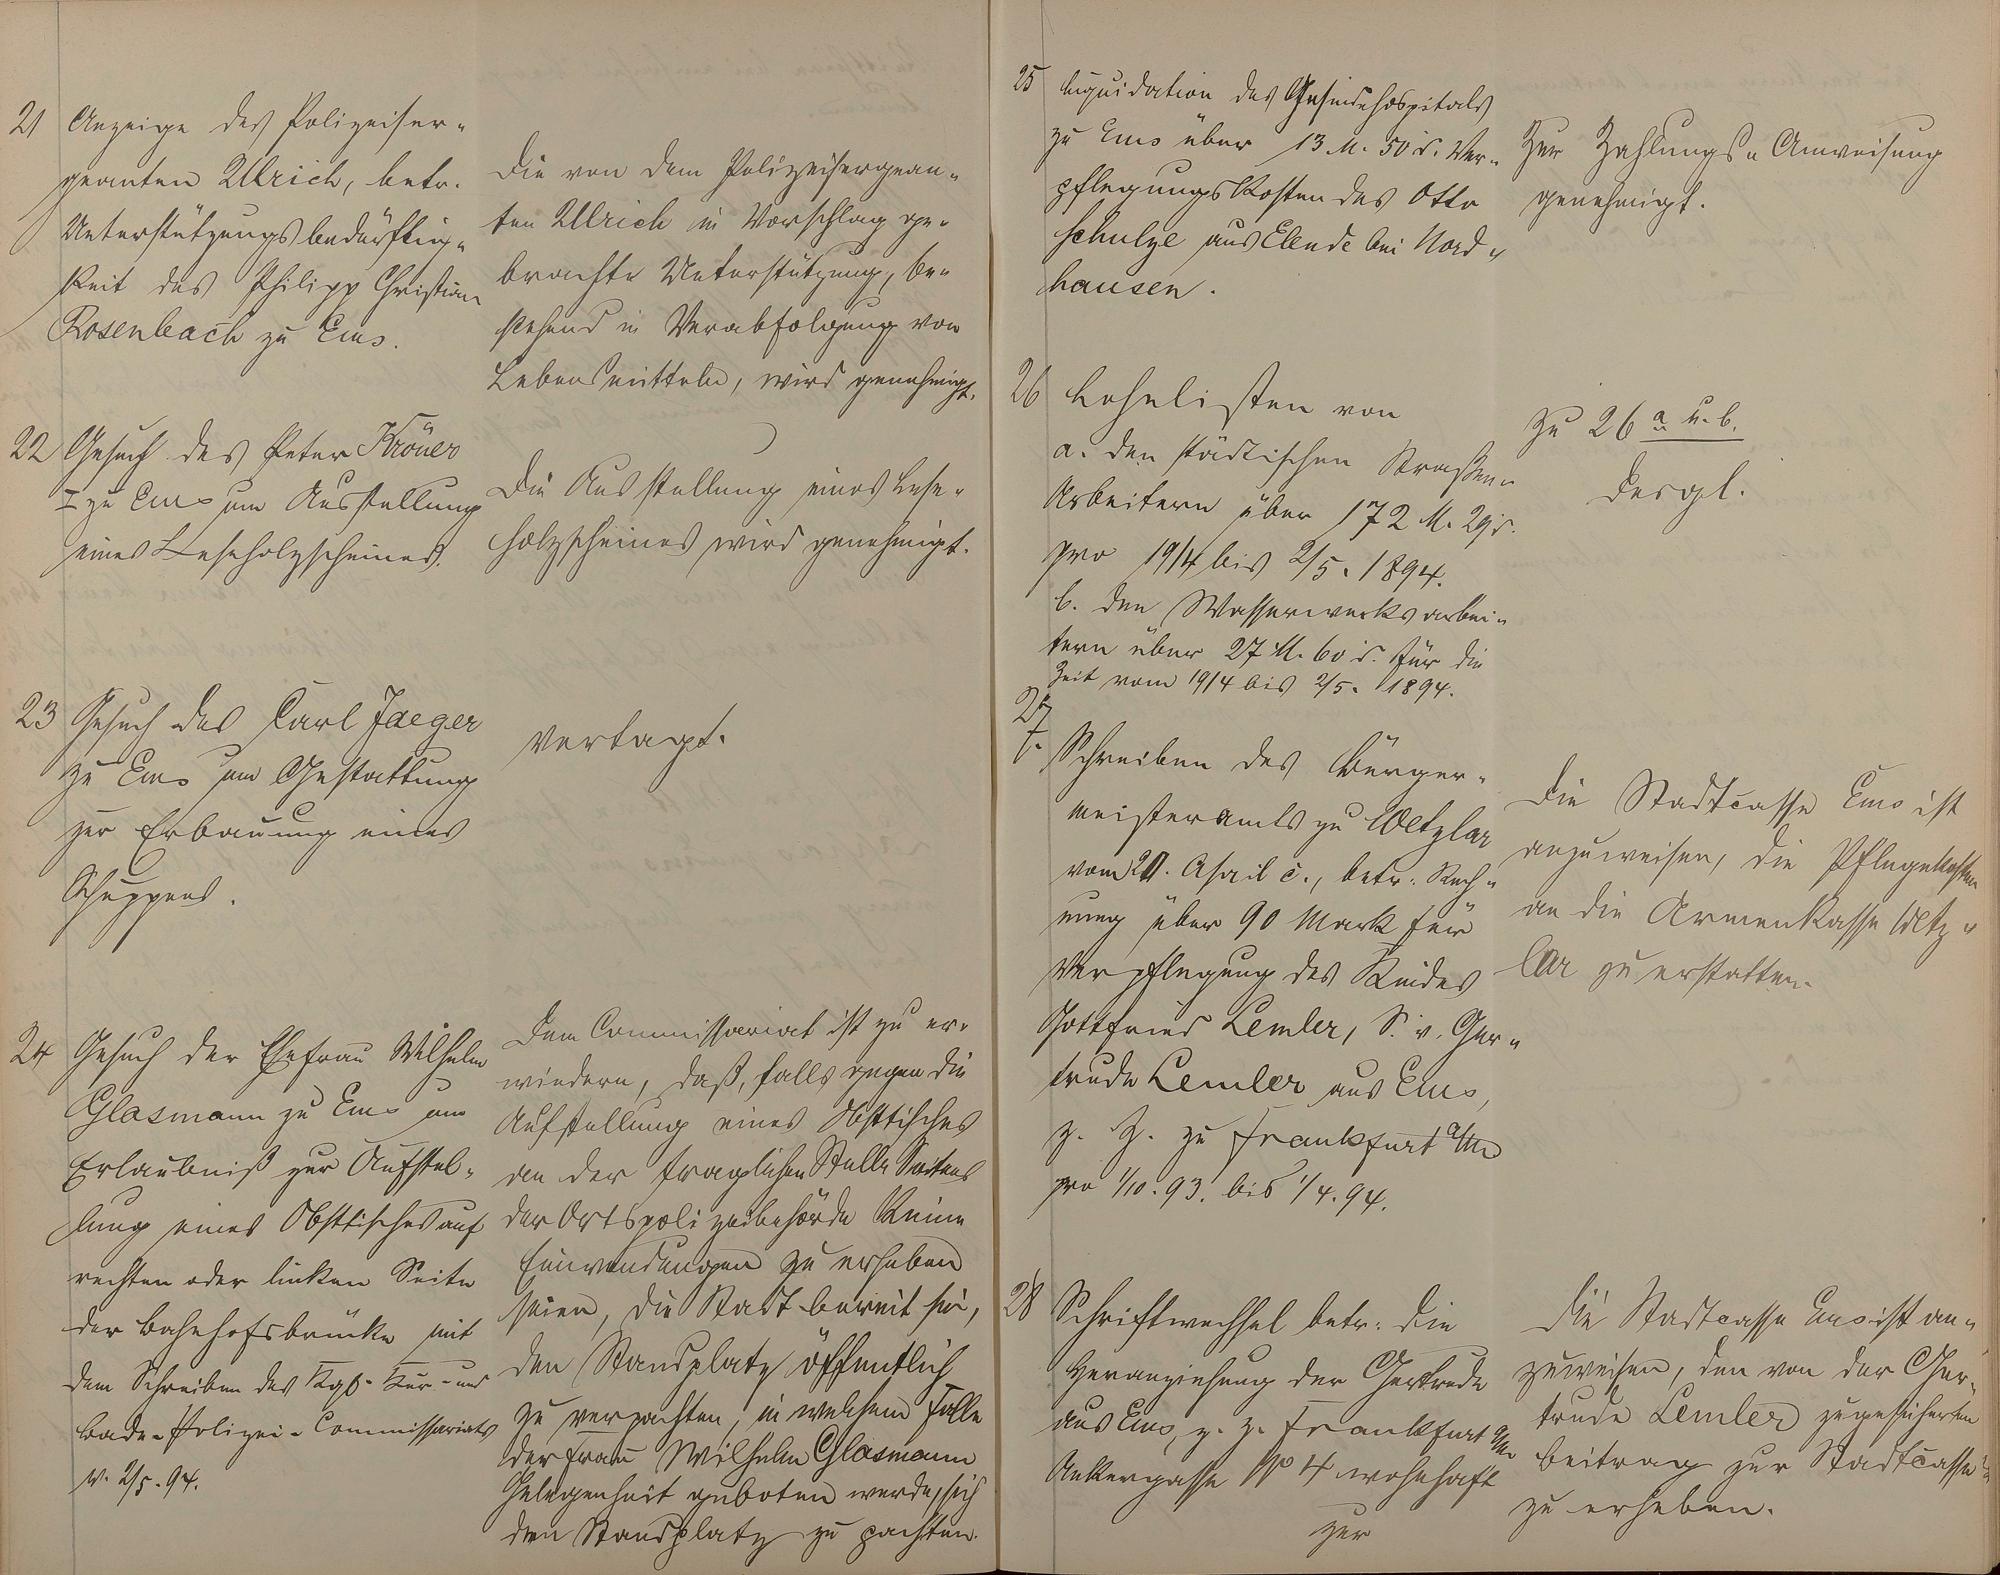 21 Anzeige des Polizeiser-
geanten Ulrich, betr.
Unterstützungsbedürftig-
keit des Philipp Christian
Rosenbach zu Ems.
Die von dem Polizeisergean-
ten Ulrich in Vorschlag ge-
brachte Unterstützung, be-
stehend in Verabfolgung von
Lebensmitteln, wird genehmigt.
22 Gesuch des Peter Kröner
I zu Ems um Ausstellung
eines Leseholzscheines.
Die Ausstellung eines Lese-
holzscheines wird genehmigt.
23 Gesuch des Carl Jaeger
zu Ems um Gestattung
zur Erbauung eines
Schuppens.
Vertagt.
24 Gesuch der Ehefrau Wilhelm
Glasmann zu Ems um
Erlaubniß zur Aufstel-
lung eines Obsttisches auf
rechten oder linken Seite
der Bahnhofsbrücke mit
dem Schreiben des Kgl. Kur- und
Bade-Polizei-Commissariats
v. 2/5. 94.
Dem Commissariat ist zu er-
wiedern, daß, falls gegen die
Aufstellung eines Obsttisches
an der fraglichen Stelle Seitens
der Ortspolizeibehörde keine
Einwendungen zu erheben
seien, die Stadt bereit sei,
den Standplatz öffentlich
zu verpachten, in welchem Falle
der Frau Wilhelm Glasmann
Gelegenheit geboten werde, sich
den Standplatz zu pachten.
25 Liquidation des Gesindehospitals
zu Ems über 13 M. 50 d. Ver-
pflegungskosten des Otto
Schulze aus Elende bei Nord-
hausen.
Zur Zahlungs-Anweisung
genehmigt.
26 Lohnlisten von
a. den städtischen Straßen-
Arbeitern über 172 M. 29 d.
pro 19/4 bis 2/5. 1894.
b. den Wasserwerksarbei-
tern über 27 M. 60 d. für die
Zeit vom 19/4 bis 2/5. 1894.
Zu 26 a u. b.
desgl.
27
Schreiben des Bürger-
meisteramts zu Wetzlar
vom April c., betr. Rech-
nung über 90 Mark für
Verpflegung des Kindes
Gottfried Lemler, S. v. Ger-
trude Lemler aus Ems,
z. Z. zu Frankfurt a/M
pro 1/10. 93. bis 1/4. 94.
Die Stadtcasse Ems ist
anzuweisen, die Pflegekosten
an die Armenkasse Wetz-
lar zu erstatten.
28 Schriftwechsel betr. die
Heranziehung der Gertrude
aus Ems, z. Z. Frankfurt a/M
Ankergasse No 4 wohnhaft
zur
Die Stadtcasse Ems ist an-
zuweisen, den von der Ger-
trude Lemler zugesicherten
Beitrag zur Stadtcasse
zu erheben.